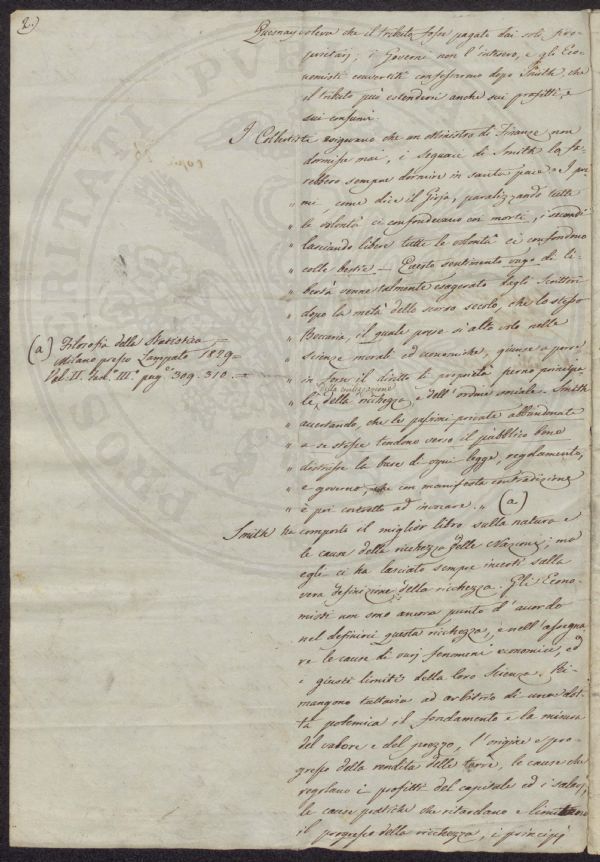 2.)
Quesnay voleva che il tributo fosse pagato dai soli pro-
prietarj; i Governi non l'intesero, e gli Eco-
nomisti convertiti confessarono dopo Smith, che
il tributo può estendersi anche sui profitti, e
sui consumi.
I Colbertisti esigevano che un Ministro di Finanze non
dormisse mai, i seguaci di Smith lo fa-
rebbero sempre dormire in santa pace. „ I pri
„ mi, come dice il Gioja, paralizzando tutte
„ le volontà ci confondevano coi morti, i secondi
„ lasciando libere tutte le volontà ci confondono
„ colle bestie — Questo sentimento vago di li-
„ bertà venne talmente esagerato dagli Scrittori
„ dopo la metà dello scorso secolo, che lo stesso
„ Beccaria, il quale poggiò sì alto volo nelle
„ scienze morali ed economiche, giunse a porre
„ in forse il diritto di proprietà perno principa
„ le della civilizzazione della ricchezza e dell'ordine sociale. Smith
„ accertando, che le passioni private abbandonate
„ a se stesse tendono verso il pubblico bene
„ distrusse la base di ogni legge, regolamento,
„ e governo, che con manifesta contradizione
„ è poi costretto ad invocare. „ (a)
(a) Filosofia della Statistica —
Milano presso Lampato 1829=
Vol. II. Fac.o III.o pag.e 309. 310. —
Smith ha composto il miglior libro sulla natura e
le cause della ricchezza delle Nazioni; ma
egli ci ha lasciato sempre incerti sulla
vera definizione della ricchezza. Gli Econo-
misti non sono ancora punto d'accordo
nel definire questa ricchezza, e nell'assegna
re le cause di varj fenomeni economici, ed
i giusti limiti della loro Scienza. Ri-
mangono tuttavia ad arbitrio di una dot
ta polemica il fondamento e la misura
del valore e del prezzo, l'origine e pro-
gresso della rendita delle terre, le cause che
regolano i profitti del capitale ed i salarj,
le cause pratiche che ritardano e limitano
il progresso della ricchezza, i principj